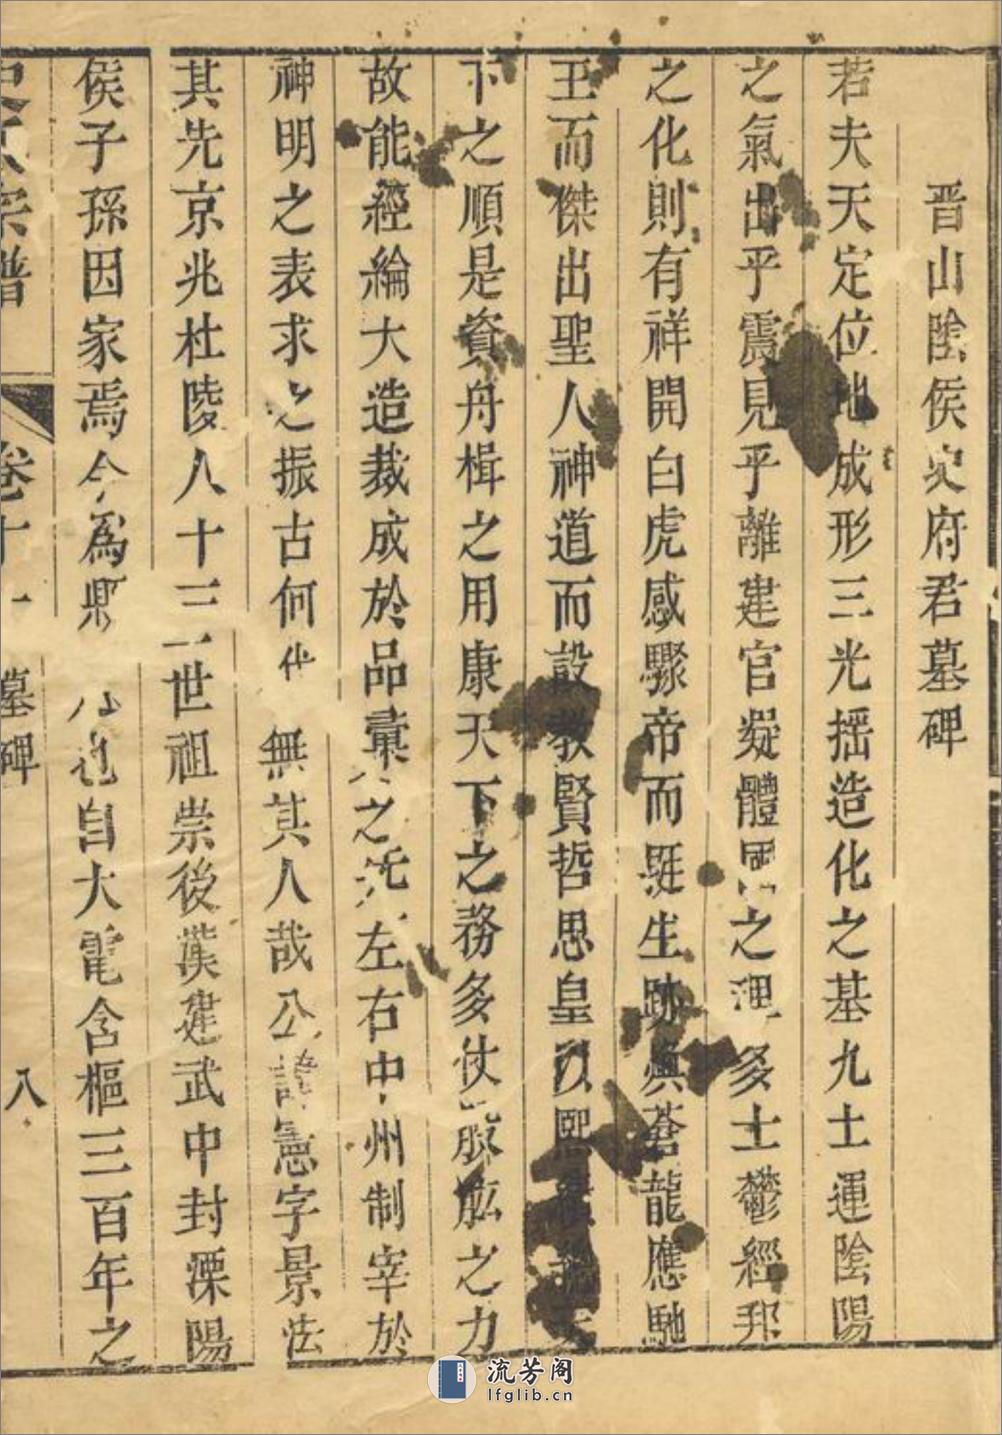 晋山陰侯史府君墓碑
若夫天定位地成形三光揺造化之基九土運陰陽
之氣出乎震見乎離建官凝體國之理多士鬱經邦
之化則有祥開白虎感驟帝而誕生跡興蒼龍應馳
王而傑出聖人神道而設教賢哲思皇以熙
下之順是資舟楫之用康天下之務多仗股肱之力
故能經綸大造裁成於品彙之先左右中州制宰於
神明之表求之振古何代無其人哉公諱憲字景法
其先京兆杜陵人十三世祖崇後漢建武中封溧陽
侯子孫因家焉今為縣人也自大電含樞三百年之
史氏宗譜
卷十一
墓碑
八
流芳阁
lfglib.cn